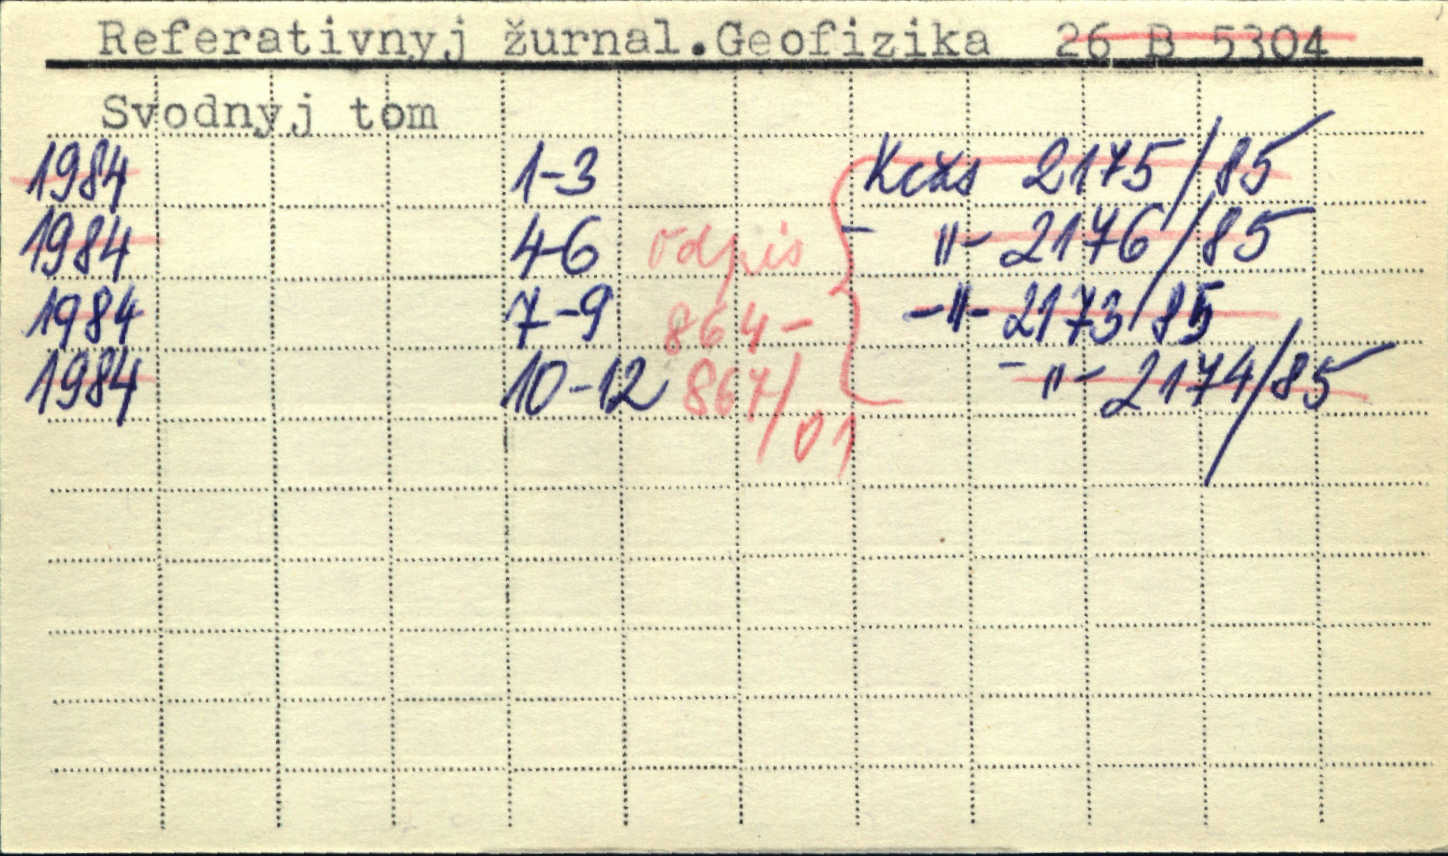 Referativnyj žurnal.Geofizika 26 B 5304
Svodnyj tom
1984 1-3 Kčžs 2175/85
1984 4-6 odpis - " - 2176/85
1984 7-9 864- - " - 2173/85
1984 10-12 867/ - " - 2174/85
01